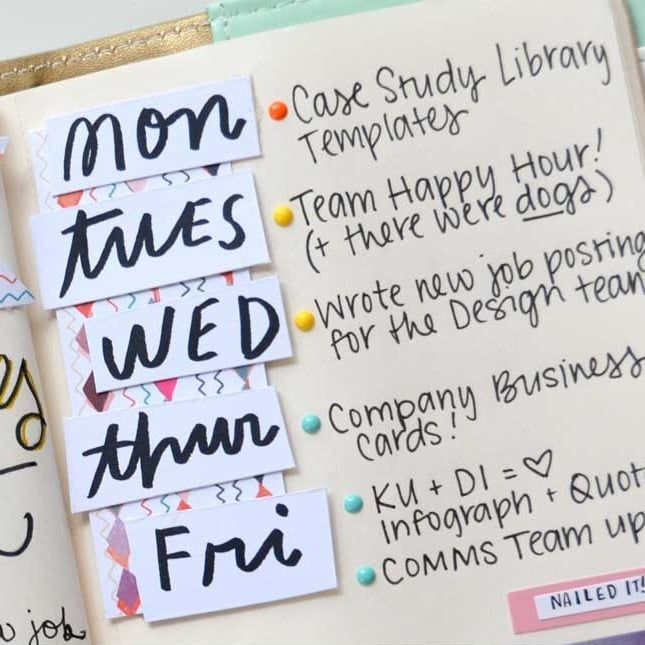 mon
Case Study Library
Templates
tuES
Team Happy Hour!
(+ there were dogs)
WED
Wrote new job posting
for the Design team
thur
Company Business
Cards!
Fri
KU + DI = ♡
infograph + Quot
COMMS Team up
NAILED IT!
job